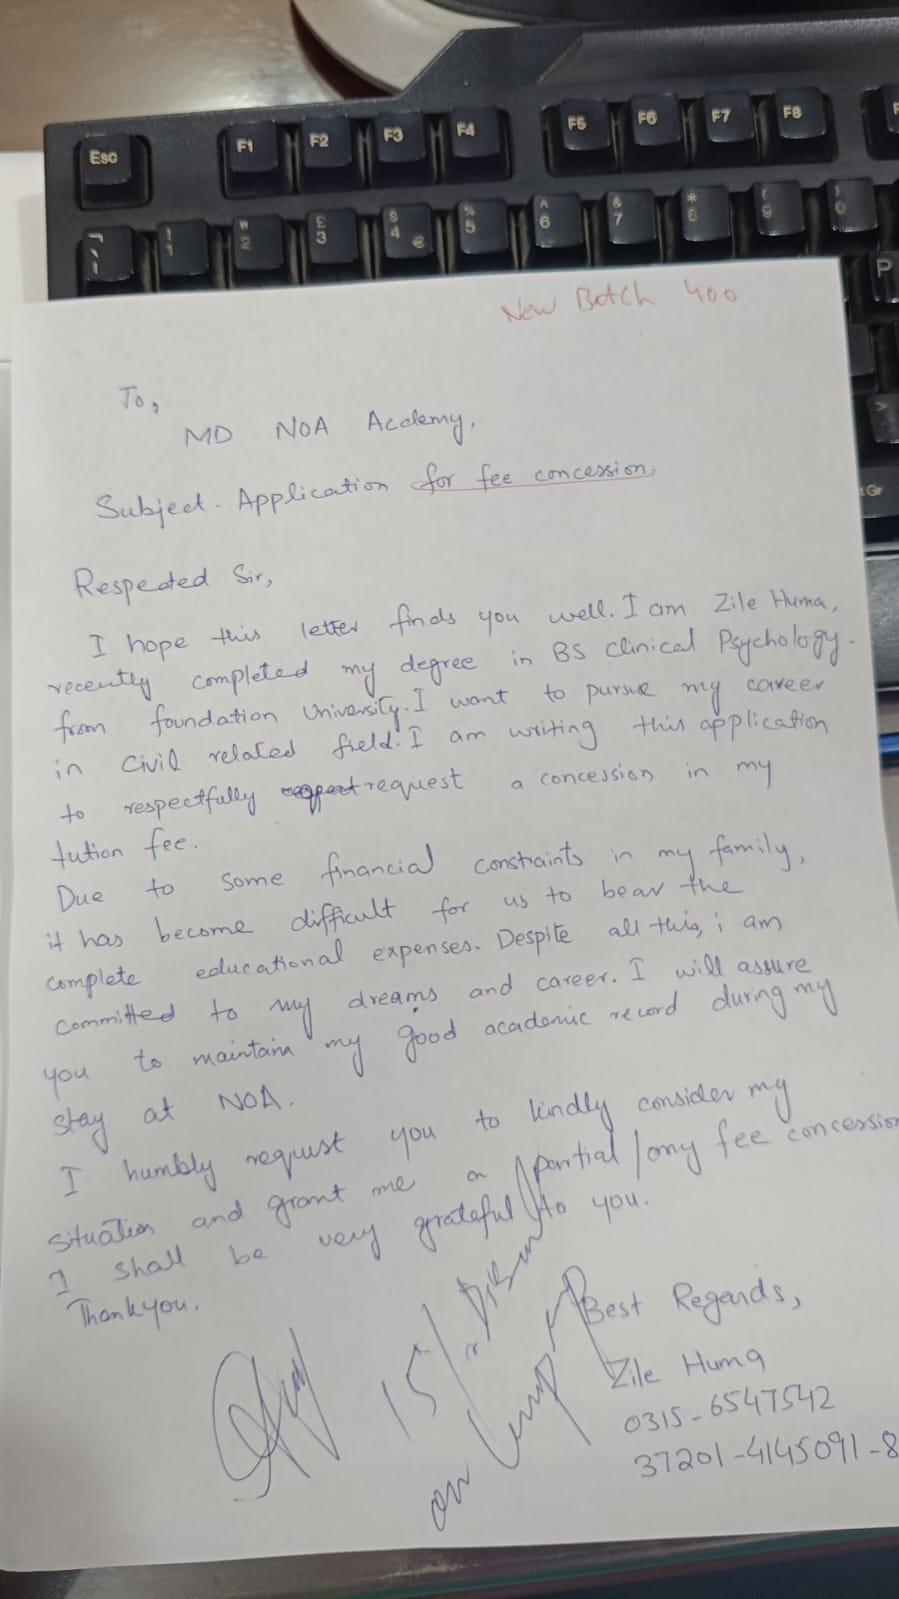 Esc F1 F2 F3 F4 F5 F6 F7 F8 F
! 1 " 2 £ 3 $ 4 € % 5 ^ 6 & 7 * 8 ( 9 ) 0
P
>
t Gr
New Batch 400
To,
MD NOA Acdemy,
Subject - Application for fee concession.
Respected Sir,
I hope this letter finds you well. I am Zile Huma,
recently completed my degree in BS Clinical Psychology.
from foundation University. I want to pursue my career
in Civil related field. I am writing this application
to respectfully request a concession in my
tution fee.
Due to some financial constraints in my family,
it has become difficult for us to bear the
complete educational expenses. Despite all this, i am
committed to my dreams and career. I will assure
you to maintain my good academic record during my
stay at NOA.
I humbly request you to kindly consider my
situation and grant me a partial / any fee concession
I shall be very grateful to you.
Thankyou.
Best Regards,
Zile Huma
0315-6547542
37201-4145091-8
15/.
on